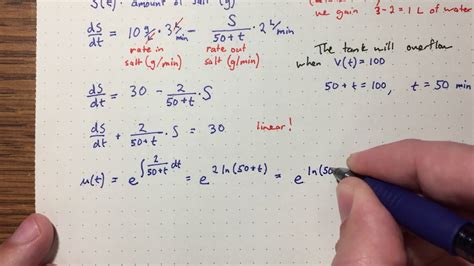 S(t): amount of salt (g)
we gain 3-2 = 1 L of water
dS/dt = 10 g/L · 3 L/min - S/(50+t) · 2 L/min
rate in salt (g/min)
rate out salt (g/min)
The tank will overflow
when V(t) = 100
50 + t = 100, t = 50 min
dS/dt = 30 - 2/(50+t) · S
dS/dt + 2/(50+t) · S = 30 linear!
μ(t) = e^∫ 2/(50+t) dt = e^2 ln(50+t) = e^ln(50